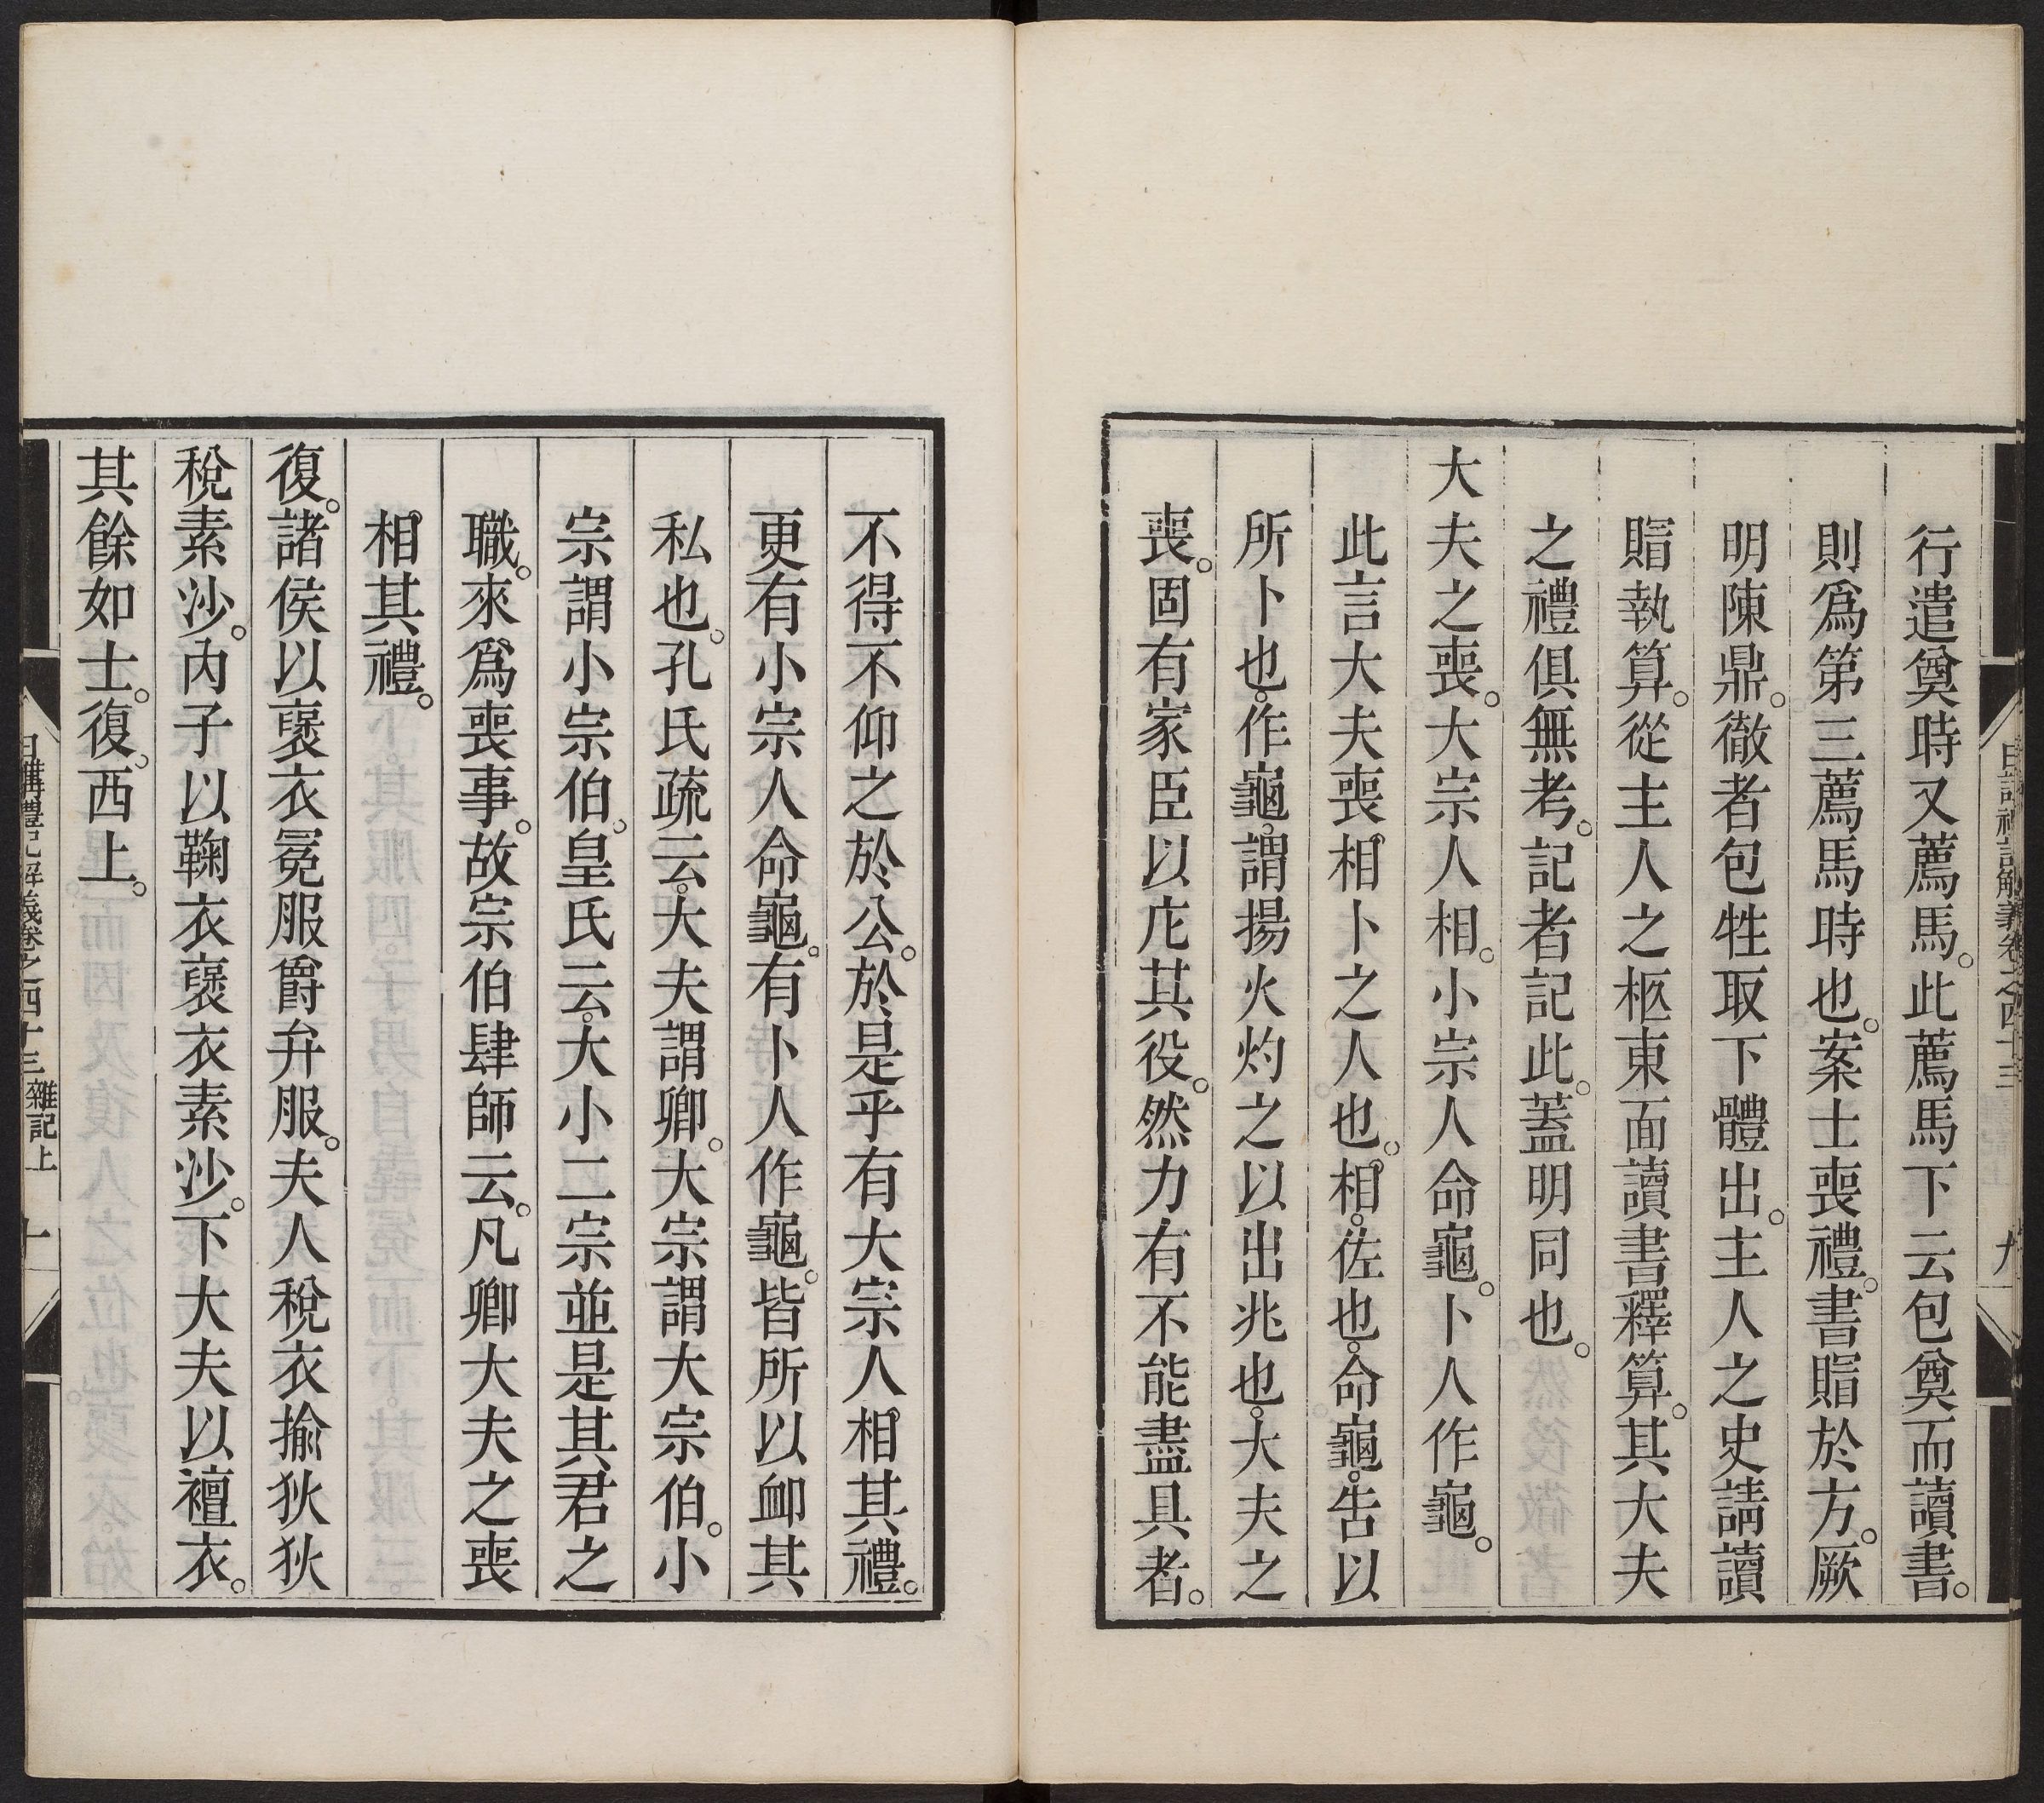 行遣奠時又薦馬。此薦馬下云包奠而讀書。
則爲第三薦馬時也。案士喪禮。書賵於方。厥
明陳鼎。徹者包牲取下體出。主人之史請讀
賵執算。從主人之柩東面讀書釋算。其大夫
之禮俱無考。記者記此。蓋明同也。
大夫之喪。大宗人相。小宗人命龜。卜人作龜。
此言大夫喪。相卜之人也。相。佐也。命龜。告以
所卜也。作龜。謂揚火灼之以出兆也。大夫之
喪。固有家臣以庀其役。然力有不能盡具者。
日講禮記解義卷之四十三
九
不得不仰之於公。於是乎有大宗人相其禮。
更有小宗人命龜。有卜人作龜。皆所以卹其
私也。孔氏疏云。大夫謂卿。大宗謂大宗伯。小
宗謂小宗伯。皇氏云。大小二宗並是其君之
職。來爲喪事。故宗伯肆師云。凡卿大夫之喪
相其禮。
復。諸侯以褒衣冕服爵弁服。夫人稅衣揄狄狄
稅素沙。內子以鞠衣褒衣素沙。下大夫以襢衣。
其餘如士。復。西上。
日講禮記解義卷之四十三 雜記上
十